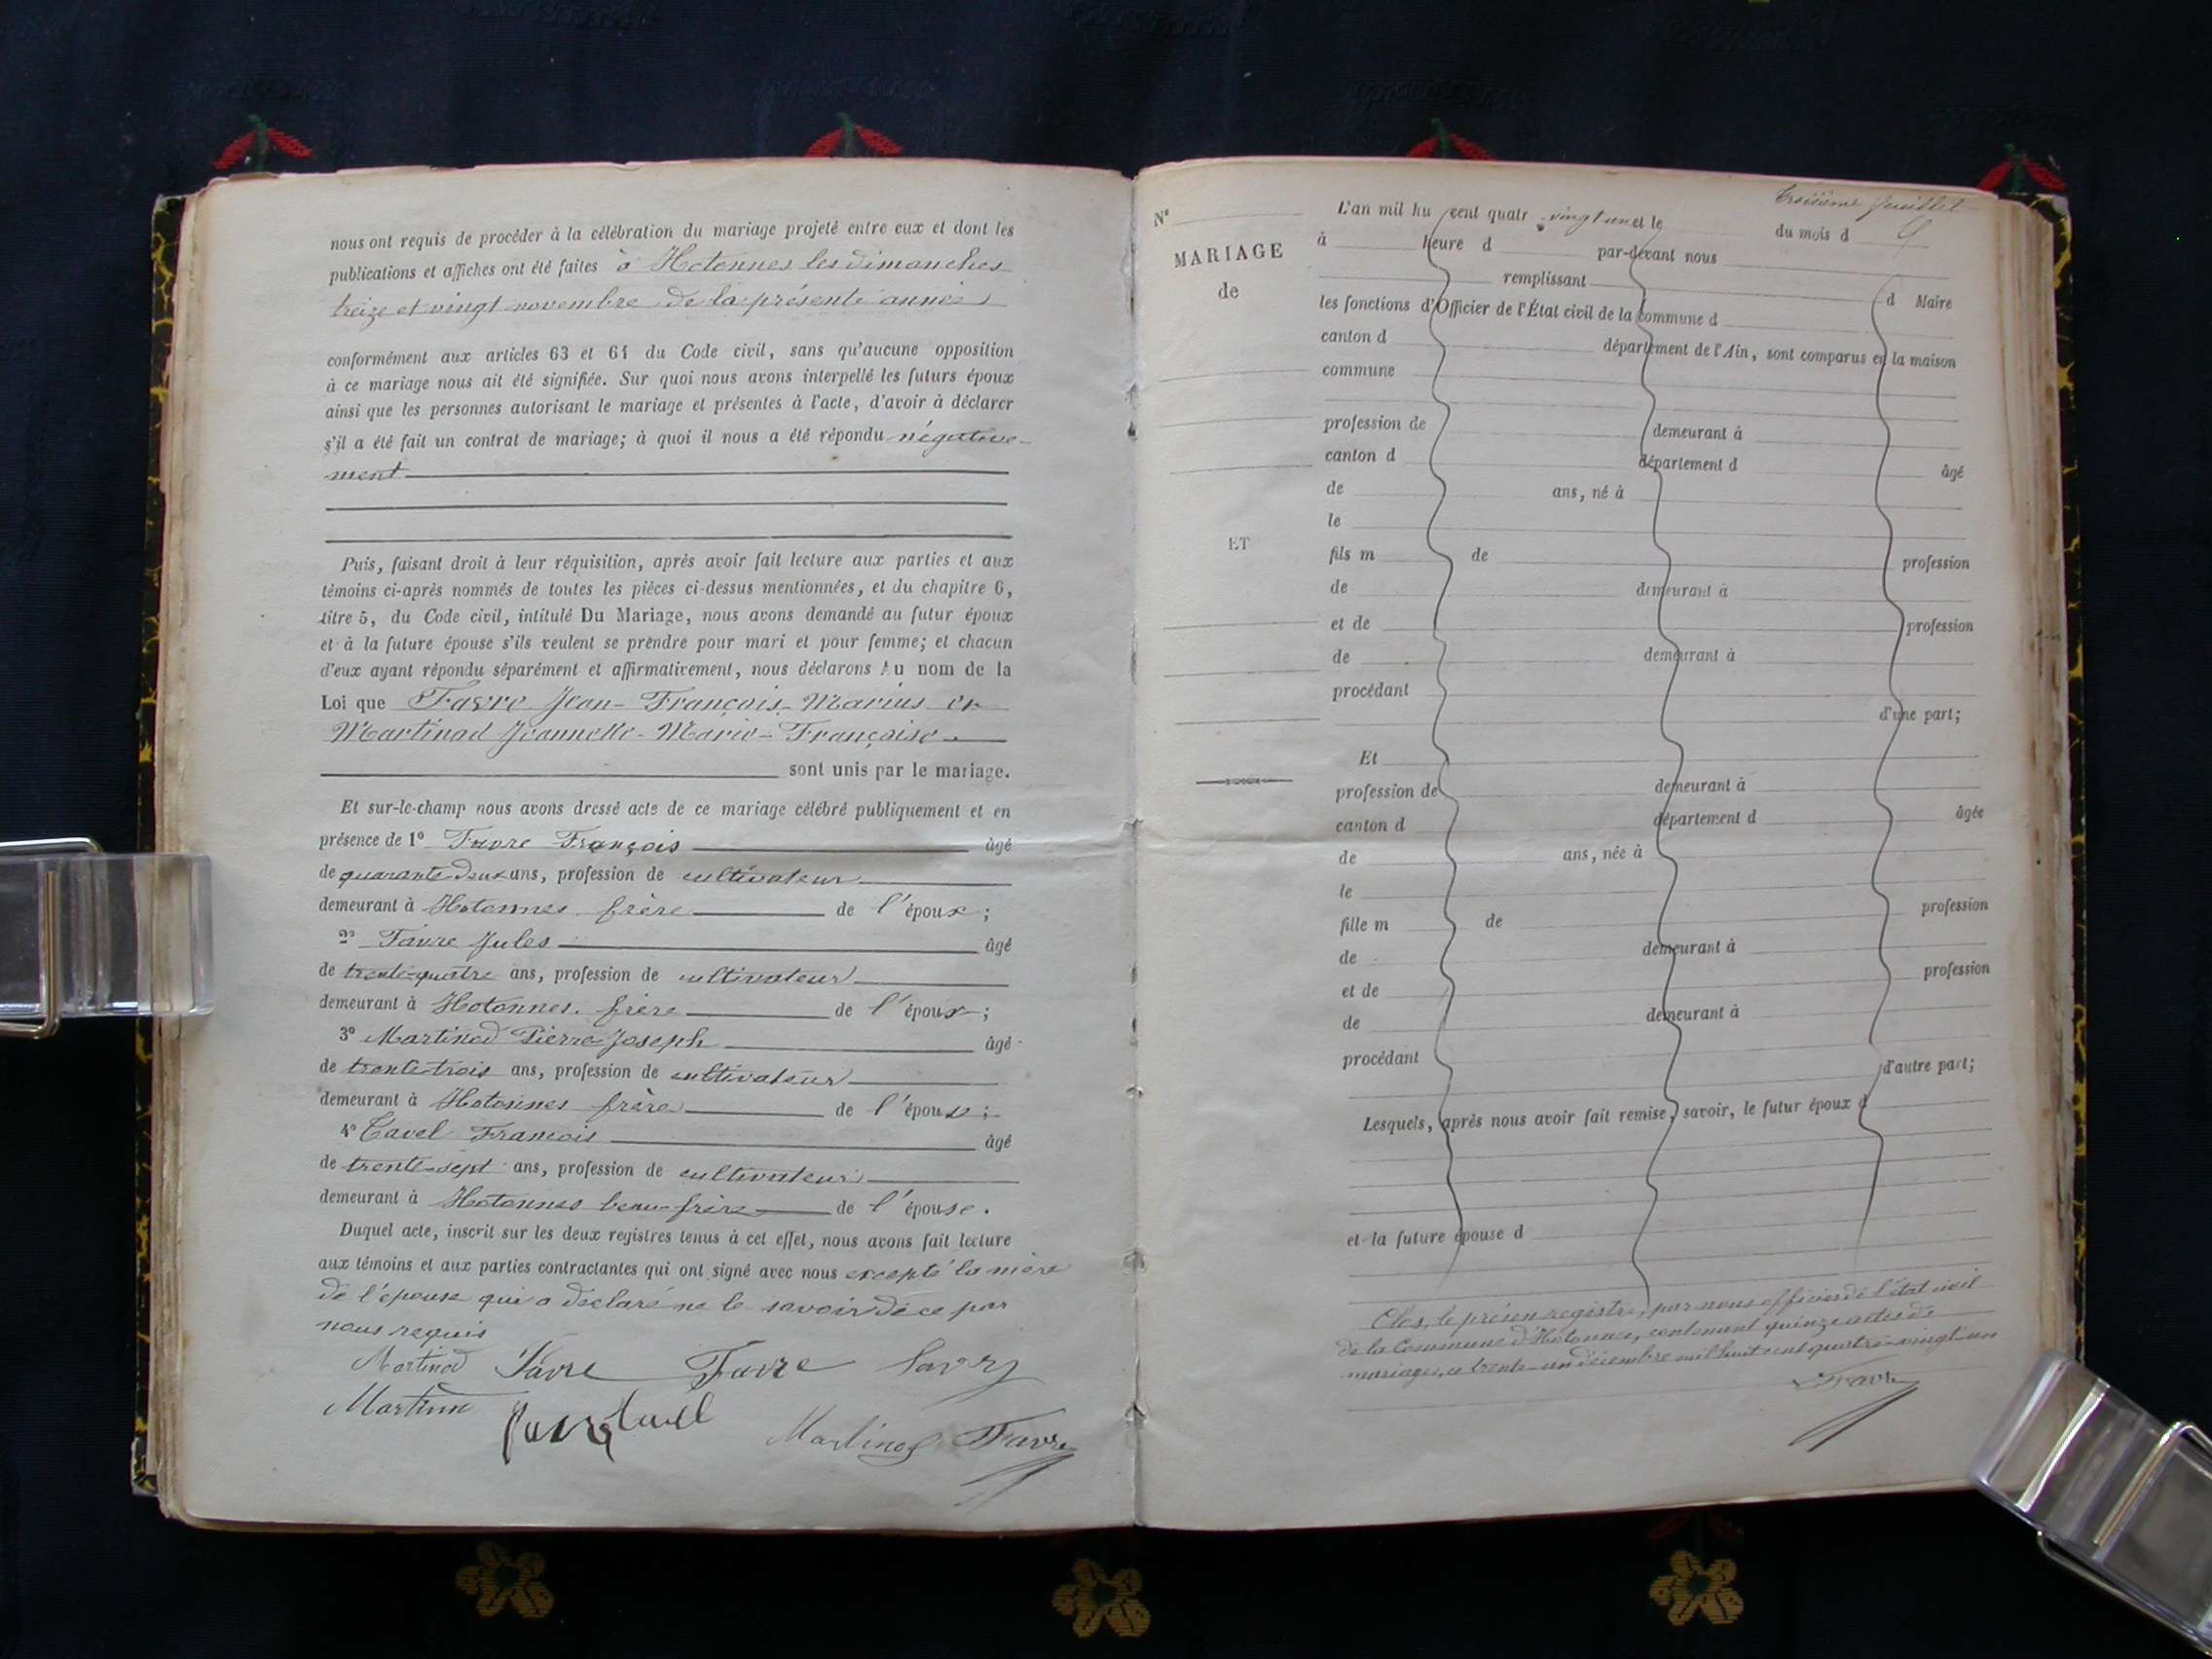 nous ont requis de procéder à la célébration du mariage projeté entre eux et dont les
publications et affiches ont été faites à Hotonnes les dimanches
treize et vingt novembre de la présente année
conformément aux articles 63 et 64 du Code civil, sans qu'aucune opposition
à ce mariage nous ait été signifiée. Sur quoi nous avons interpellé les futurs époux
ainsi que les personnes autorisant le mariage et présentes à l'acte, d'avoir à déclarer
s'il a été fait un contrat de mariage; à quoi il nous a été répondu négative-
ment
Puis, faisant droit à leur réquisition, après avoir fait lecture aux parties et aux
témoins ci-après nommés de toutes les pièces ci-dessus mentionnées, et du chapitre 6,
titre 5, du Code civil, intitulé Du Mariage, nous avons demandé au futur époux
et à la future épouse s'ils veulent se prendre pour mari et pour femme; et chacun
d'eux ayant répondu séparément et affirmativement, nous déclarons Au nom de la
Loi que Favre Jean-François-Marius et
Martinod Jeannette-Marie-Françoise
sont unis par le mariage.
Et sur-le-champ nous avons dressé acte de ce mariage célébré publiquement et en
présence de 1° Favre François âgé
de quarante deux ans, profession de cultivateur
demeurant à Hotonnes frère de l'époux;
2° Favre Jules âgé
de trente-quatre ans, profession de cultivateur
demeurant à Hotonnes. frère de l'époux;
3° Martinod Pierre-Joseph âgé
de trente-trois ans, profession de cultivateur
demeurant à Hotonnes frère de l'épouse;
4° Tavel François âgé
de trente-sept ans, profession de cultivateur
demeurant à Hotonnes beau-frère de l'épouse.
Duquel acte, inscrit sur les deux registres tenus à cet effet, nous avons fait lecture
aux témoins et aux parties contractantes qui ont signé avec nous excepté la mère
de l'épouse qui a déclaré ne le savoir de ce par
nous requis
Martinod Favre Favre Favre
Martinod Tavel Martinod Favre
Troisième feuillet
N°
MARIAGE
de
ET
L'an mil huit cent quatre vingt un et le du mois d
à heure d par-devant nous
remplissant d Maire
les fonctions d'Officier de l'État civil de la commune d
canton d département de l'Ain, sont comparus en la maison
commune
profession de demeurant à
canton d département d âgé
de ans, né à
le
fils m de profession
de demeurant à
et de profession
de demeurant à
procédant
d'une part;
Et
profession de demeurant à
canton d département d âgée
de ans, née à
le
fille m de profession
de demeurant à
et de profession
de demeurant à
procédant
d'autre part;
Lesquels, après nous avoir fait remise, savoir, le futur époux d
et la future épouse d
Clos, le présen registre, par nous officier de l'état civil
de la Commune d'Hotonnes, contenant quinze actes de
mariages, ce trente-un décembre mil huit cent quatre-vingt un
Favre